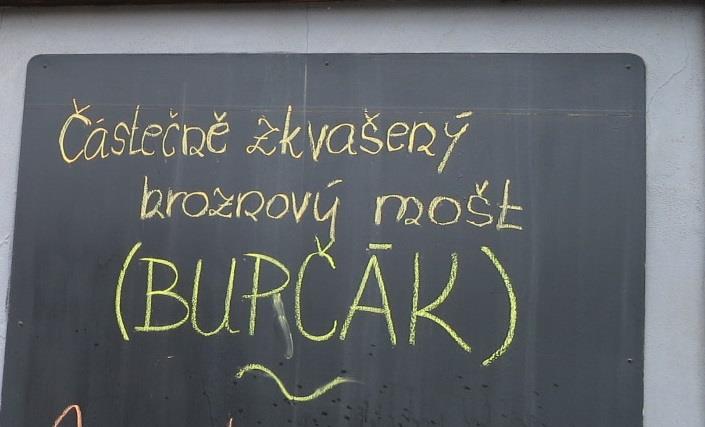 Částečně zkvašený
hroznový mošt
(BURČÁK)